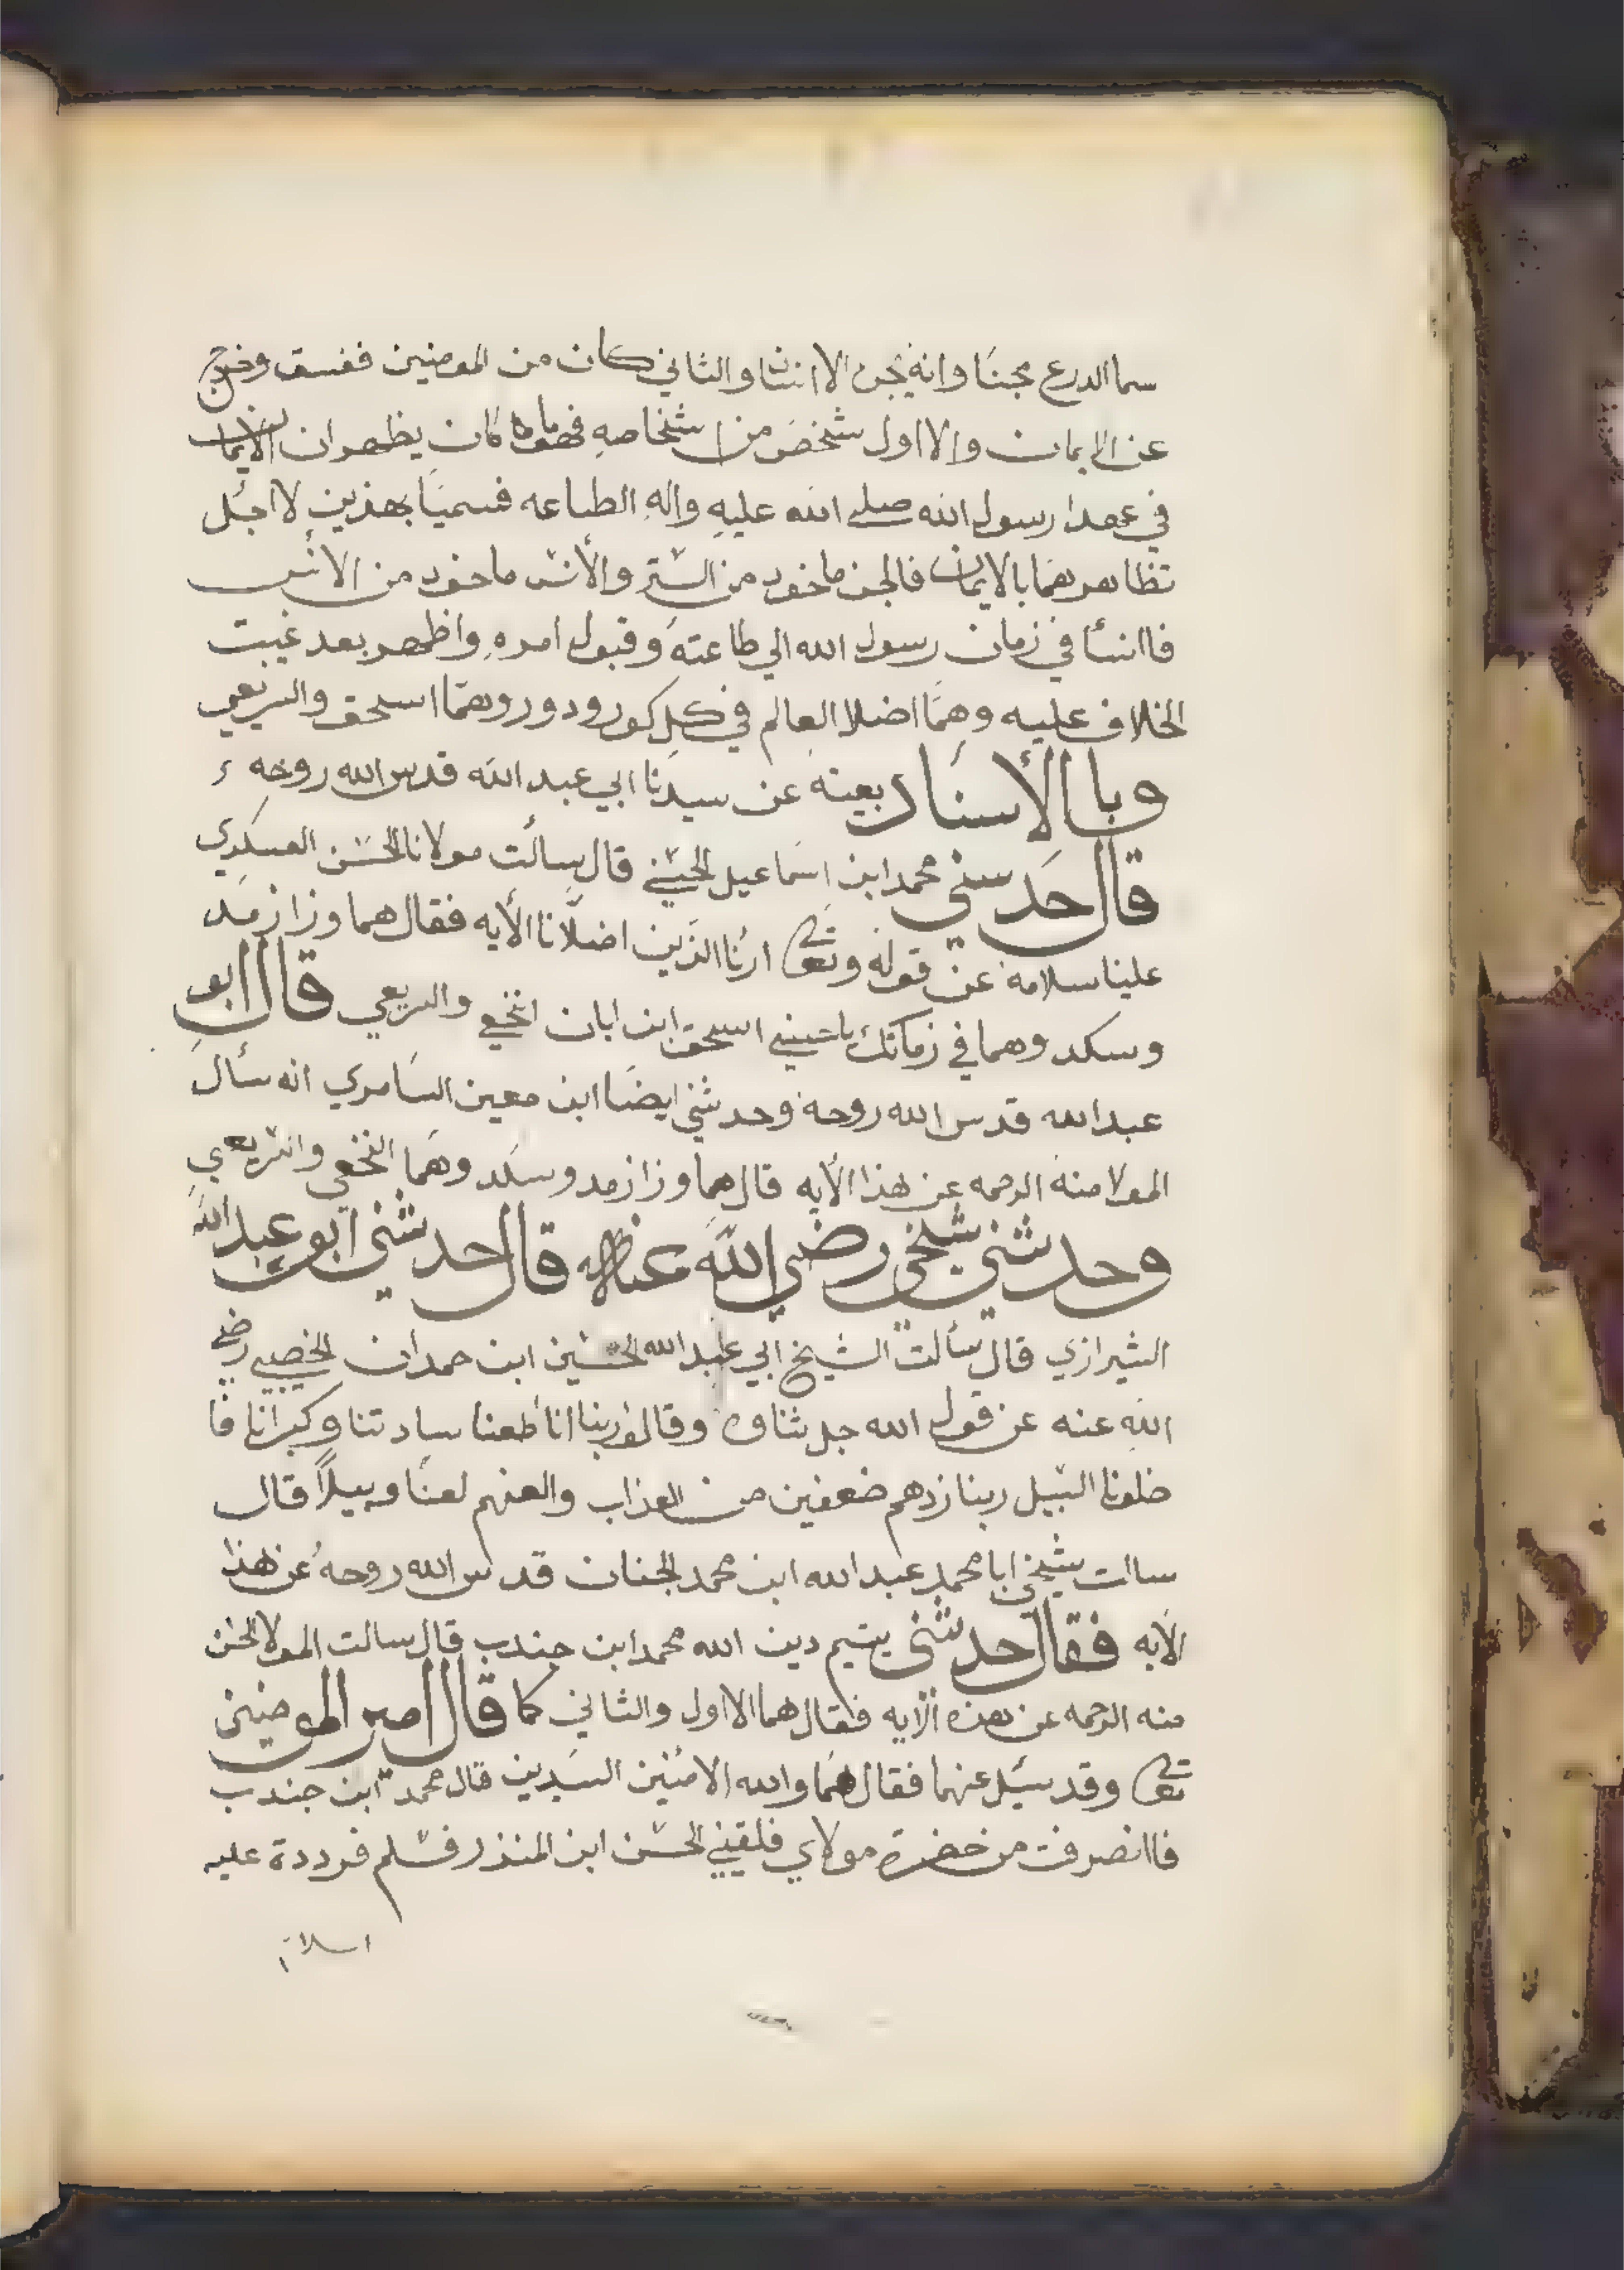 سما الدرع مجنا وانه يجن الاانسان والثاني كان من المومنين ففسق وخرج
عن الايمان والااول شخص من اشخاصه فهما كان يظهران الايمان
في عهدا رسول الله صلى الله عليه واله الطاعه فسميا بهذين لااجل
تظاهرهما بالايمان فالجن ماخود من الستر والأنس ماخود من الأنس
فاانسا في زمان رسول الله الي طاعته وقبول امره واظهر بعد غيبت
الخلاف عليه وهما اضلا العالم في كل كور ودور وهما اسحق والشريعي
وبا الأسناد بعينه عن سيدنا ابي عبد الله قدس الله روحه
قال حدسني محمد ابن اسماعيل الحسني قال سالت مولانا الحسن العسكري
علينا سلامه عن قوله وتعى ارنا الذين اضلانا الأيه فقال هما وزازمد
وسكد وهما في زمانك ياحسني اسحق ابن ابان انخعي والشريعي قال ابو
عبد الله قدس الله روحه وحدثني ايضا ابن معين السامري انه سأل
المولا منه الرحمه عن هذا الأيه قال هما وزازمد وسكد وهما النخعي والشريعي
وحدثني شيخي رضي الله عنه قال حدثني ابو عبد الله
الشيرازي قال سألت الشيخ ابي عبد الله الحسين ابن حمدان الخصيبي رضي
الله عنه عن قول الله جل ثناوه وقالو ربنا انا طعنا سادتنا وكبرانا فا
ضلونا السبيل ربنا زدهم ضعفين من العذاب والعنهم لعنا وبيلاً قال
سالت شيخي ابا محمد عبد الله ابن محمد الجنان قدس الله روحه عن هذا
الايه فقال حدثني يتيم دين الله محمد ابن جندب قال سالت المولا الحسن
منه الرحمه عن هذه الايه فقال هما الااول والثاني كما قال امير المومنين
تعى وقد سيل عنهما فقال هما والله الامنين السيدين قال محمد ابن جندب
فاانصرفت من حضرة مولاي فلقيني الحسن ابن المنذر فسلم فرددة عليه
اسلام